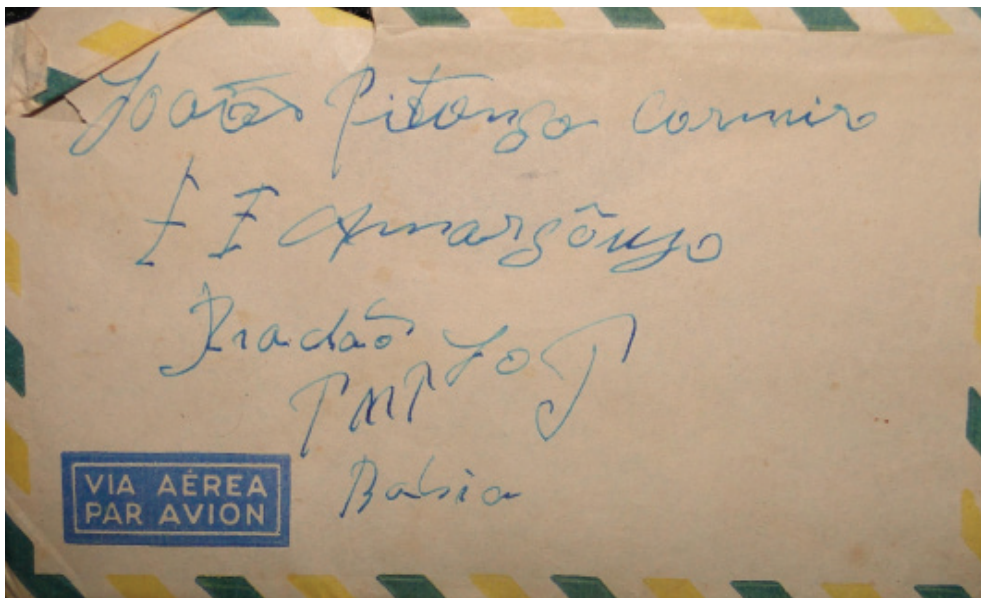 João Pitonga Carneiro
E E Amargôngo
Bradão
Bahia
VIA AÉREA
PAR AVION